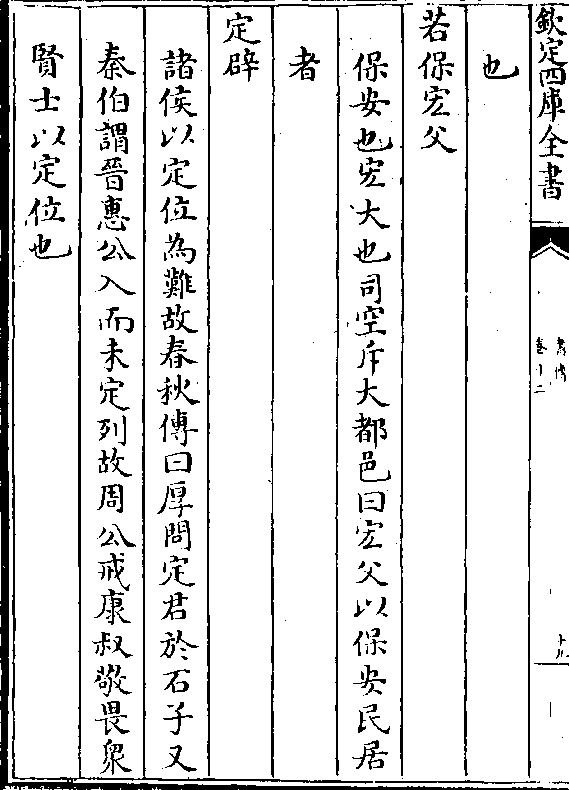 欽定四庫全書
書傳
卷十二
十九
也
若保宏父
保安也宏大也司空斥大都邑曰宏父以保安民居
者
定辟
諸侯以定位為難故春秋傳曰厚問定君於石子又
秦伯謂晉惠公入而未定列故周公戒康叔敬畏衆
賢士以定位也